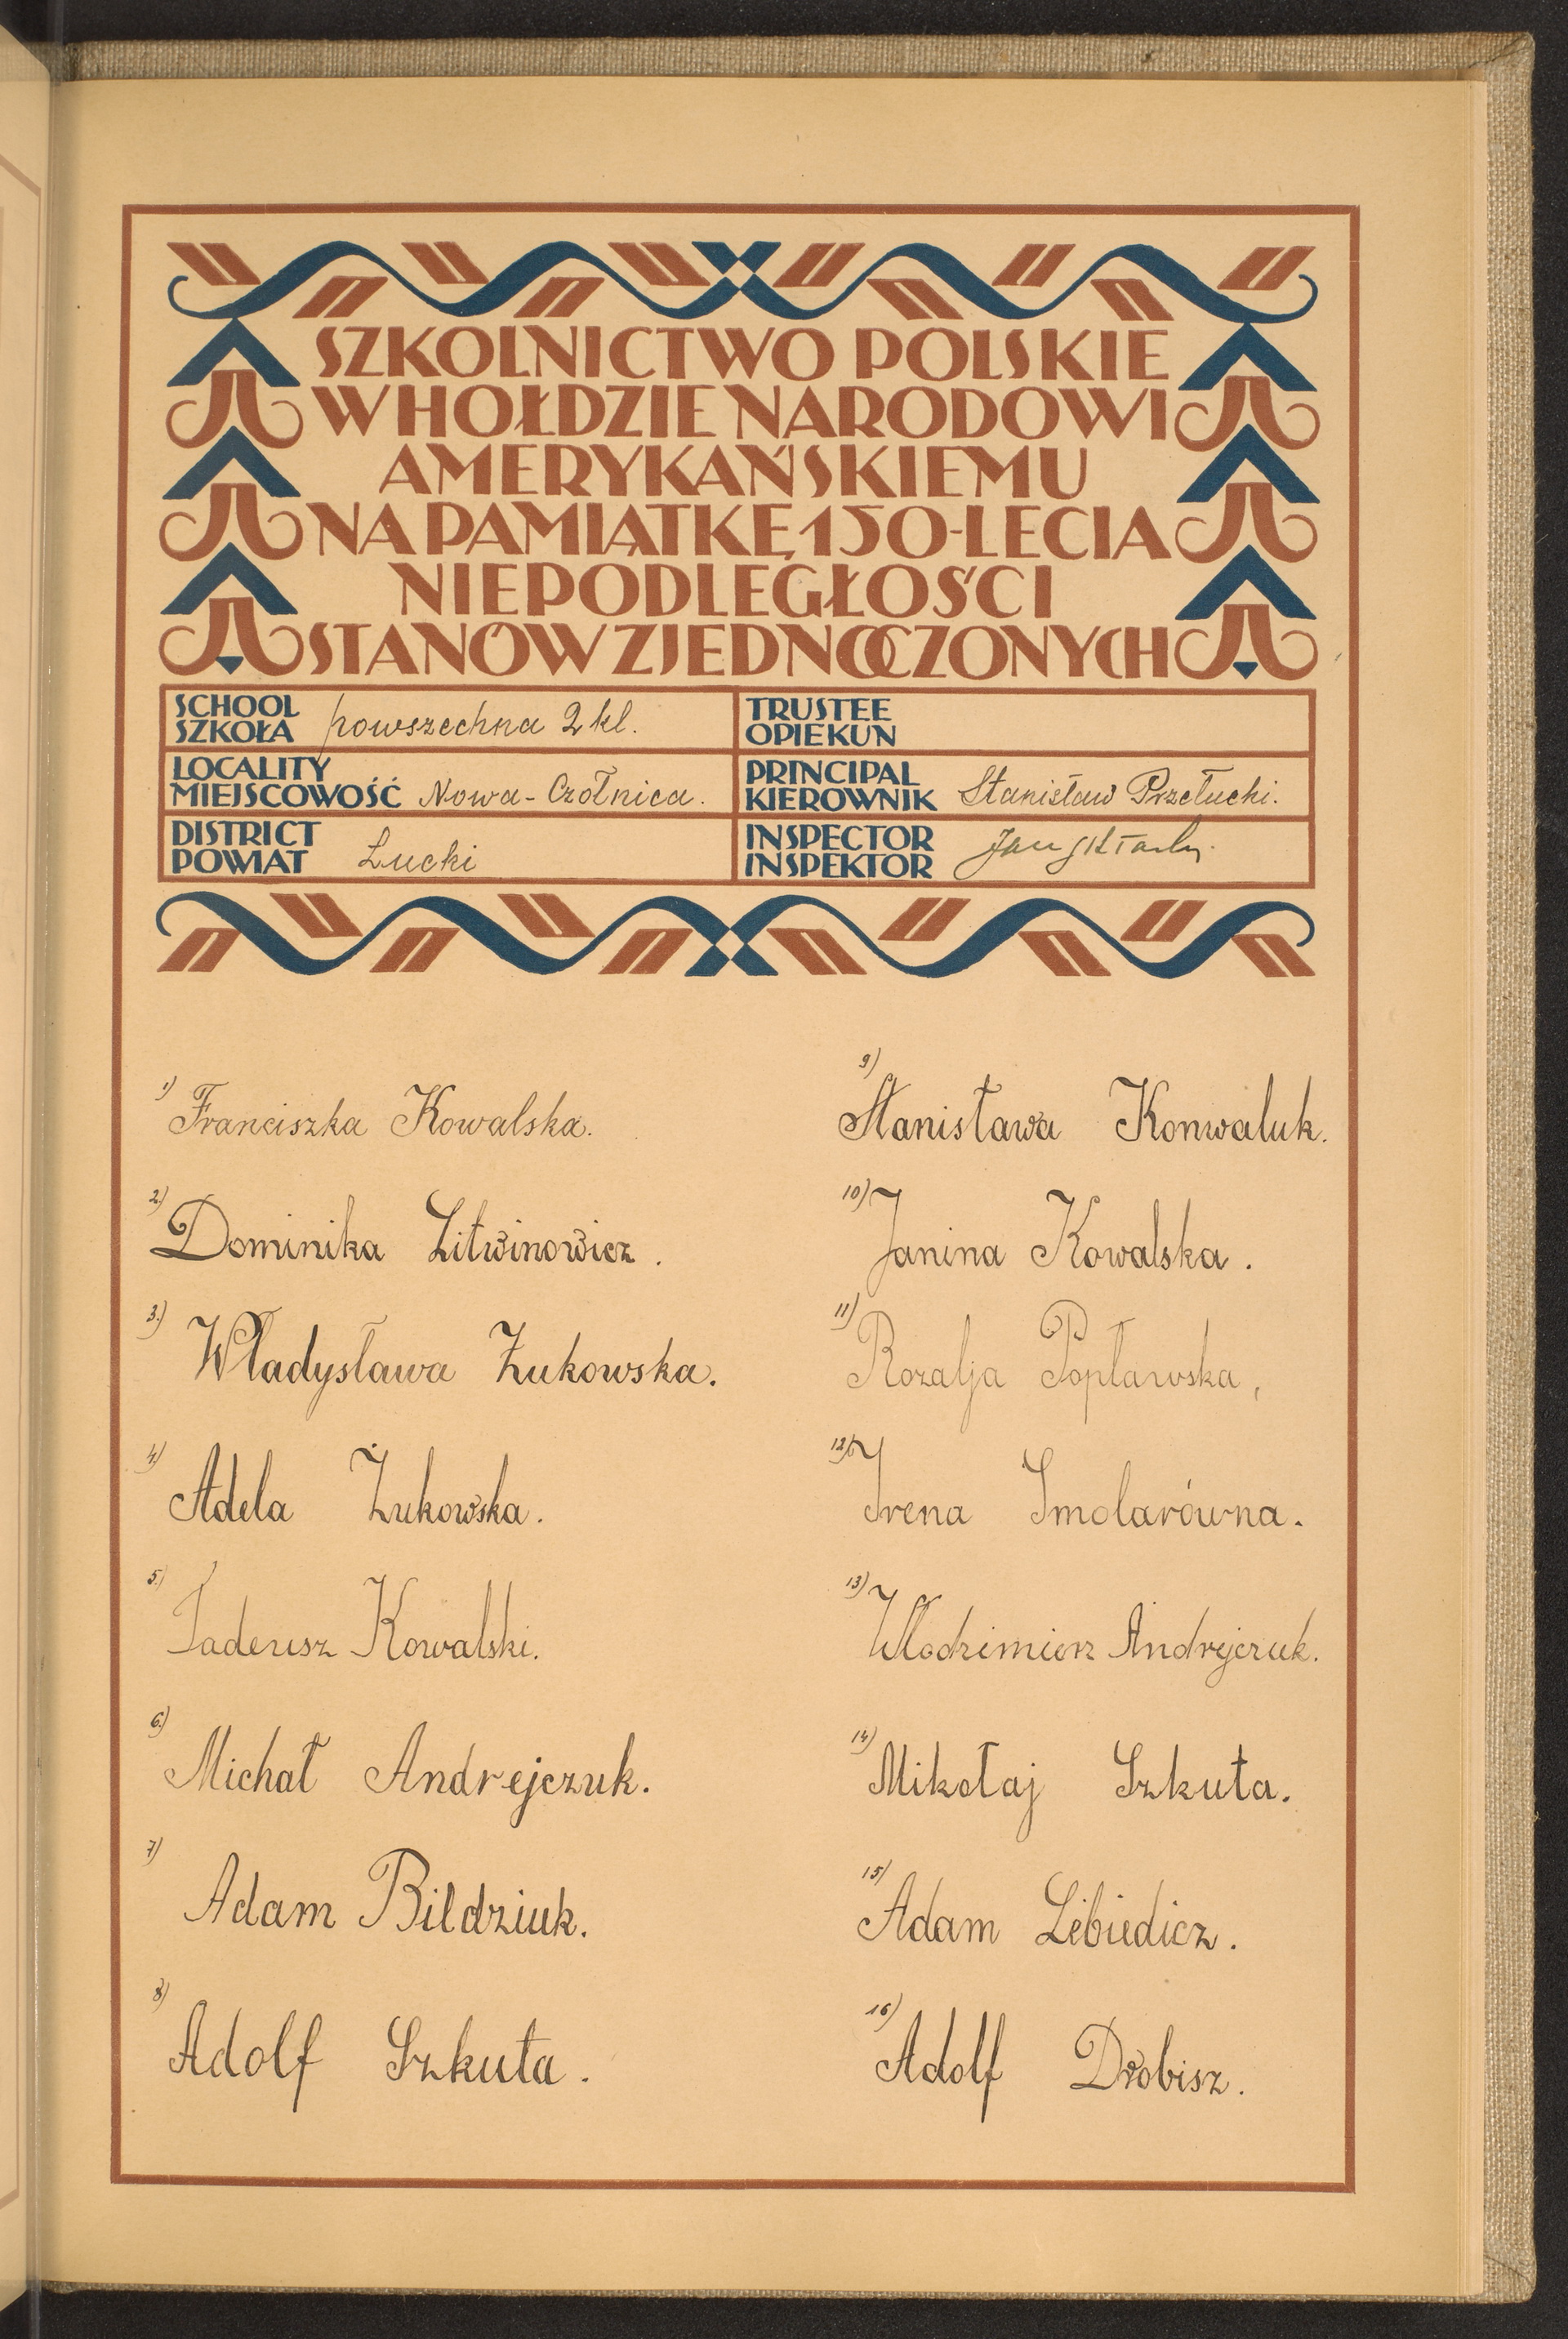 SZKOLNICTWO POLSKIE
W HOŁDZIE NARODOWI
AMERYKAŃSKIEMU
NA PAMIĄTKĘ 150-LECIA
NIEPODLEGŁOŚCI
STANÓW ZJEDNOCZONYCH
SCHOOL
SZKOŁA powszechna 2 kl.
TRUSTEE
OPIEKUN
LOCALITY
MIEJSCOWOŚĆ Nowa-Czołnica.
PRINCIPAL
KIEROWNIK Stanisław Przełucki.
DISTRICT
POWIAT Łucki
INSPECTOR
INSPEKTOR Jan
1) Franciszka Kowalska.
2) Dominika Litwinowicz.
3.) Władysława Żukowska.
4) Adela Żukowska.
5.) Tadeusz Kowalski.
6.) Michał Andrejczuk.
7) Adam Bildziuk.
8) Adolf Szkuta.
9) Stanisława Konwaluk.
10) Janina Kowalska.
11) Rozalja Popławska,
12) Irena Smolarówna.
13) Włodzimierz Andrejczuk.
14) Mikołaj Szkuta.
15) Adam Lebiedicz.
16) Adolf Drobisz.